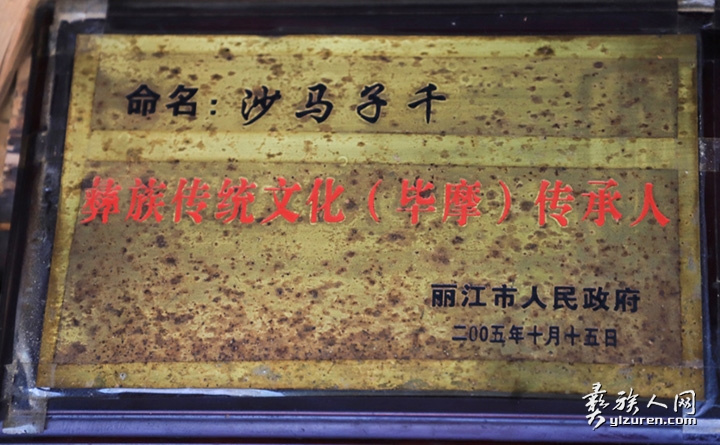 命名：沙马子千
彝族传统文化（毕摩）传承人
丽江市人民政府
二00五年十月十五日
彝族人网
yizuren.com